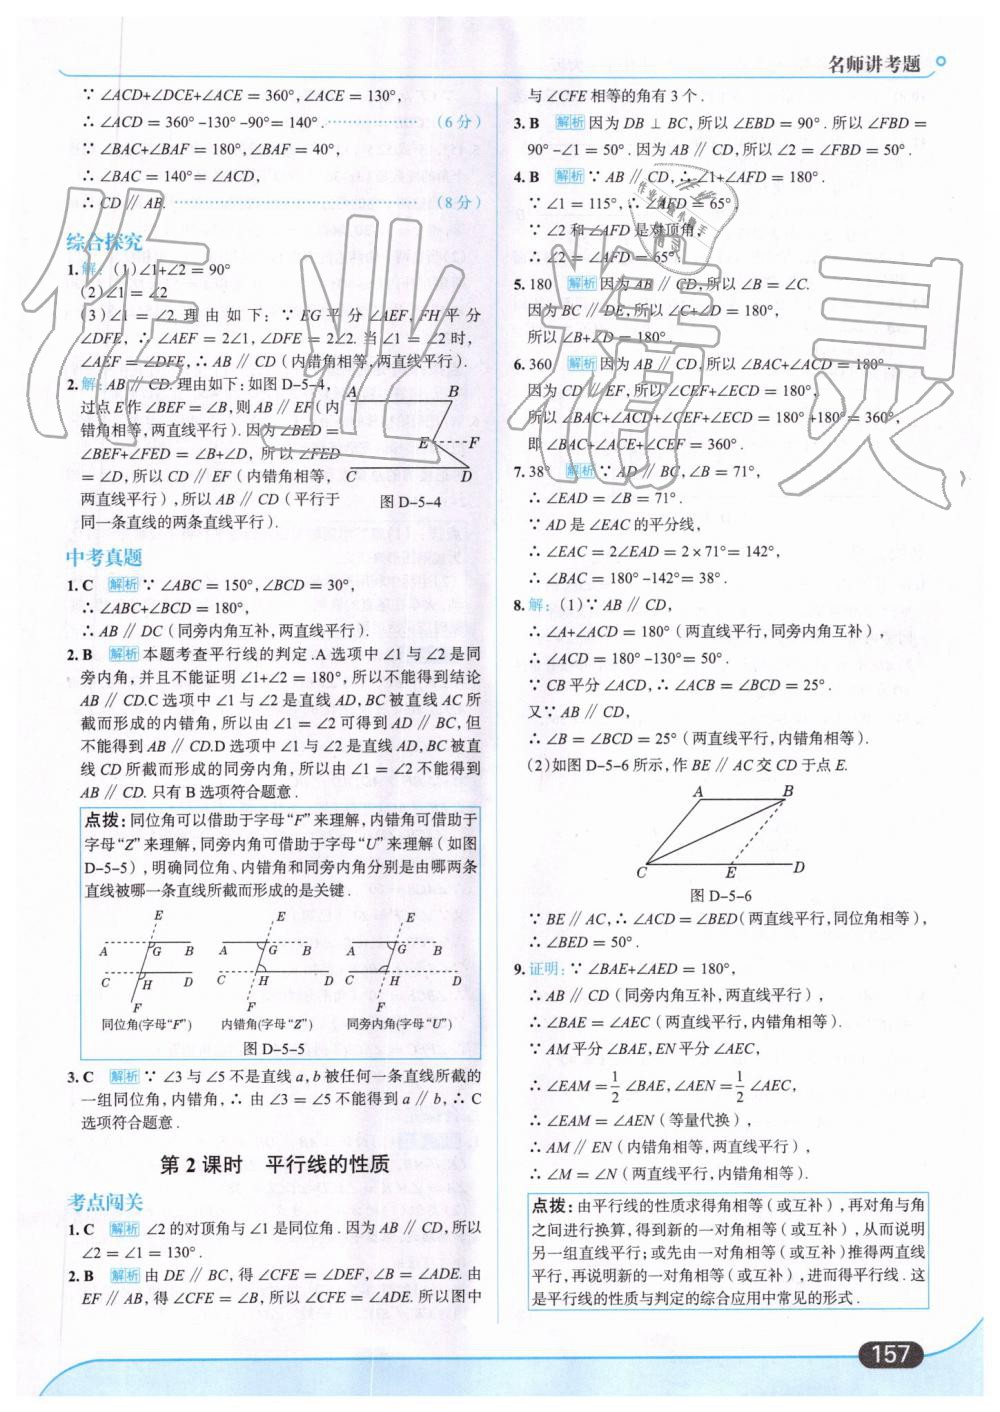 名师讲考题
∵ ∠ACD+∠DCE+∠ACE = 360°,∠ACE = 130°,
∴ ∠ACD = 360° -130° -90°= 140° .……………(6分)
∵ ∠BAC+∠BAF = 180°,∠BAF = 40°,
∴ ∠BAC = 140°= ∠ACD,
∴ CD ∥ AB. ……………………………(8分)
综合探究
1. 解:(1)∠1+∠2 = 90°
(2)∠1 = ∠2
(3)∠1 = ∠2. 理由如下: ∵ EG 平分 ∠AEF, FH 平分
∠DFE, ∴ ∠AEF = 2∠1,∠DFE = 2∠2. 当 ∠1 = ∠2 时,
∠AEF = ∠DFE,∴ AB ∥ CD(内错角相等,两直线平行).
2. 解:AB ∥ CD. 理由如下:如图 D-5-4,
过点 E 作 ∠BEF = ∠B,则 AB ∥ EF(内
错角相等,两直线平行). 因为 ∠BED =
∠BEF+∠FED = ∠B+∠D, 所以 ∠FED
= ∠D,所以 CD ∥ EF(内错角相等,
两直线平行),所以 AB ∥ CD(平行于
同一条直线的两条直线平行).
A B
E F
C D
图 D-5-4
中考真题
1. C 解析 ∵ ∠ABC = 150°,∠BCD = 30°,
∴ ∠ABC+∠BCD = 180°,
∴ AB ∥ DC(同旁内角互补,两直线平行).
2. B 解析 本题考查平行线的判定.A 选项中 ∠1 与 ∠2 是同
旁内角,并且不能证明 ∠1+∠2 = 180°,所以不能得到结论
AB ∥ CD.C 选项中 ∠1 与 ∠2 是直线 AD,BC 被直线 AC 所
截而形成的内错角,所以由 ∠1 = ∠2 可得到 AD ∥ BC,但
不能得到 AB ∥ CD.D 选项中 ∠1 与 ∠2 是直线 AD,BC 被直
线 CD 所截而形成的同旁内角,所以由 ∠1 = ∠2 不能得到
AB ∥ CD. 只有 B 选项符合题意.
点拨:同位角可以借助于字母“F”来理解,内错角可借助于
字母“Z”来理解,同旁内角可借助于字母“U”来理解(如图
D-5-5),明确同位角、内错角和同旁内角分别是由哪两条
直线被哪一条直线所截而形成的是关键.
E E E
A G B A G B A G B
C H D C H D C H D
F F F
同位角(字母“F”) 内错角(字母“Z”) 同旁内角(字母“U”)
图 D-5-5
3. C 解析 ∵ ∠3 与 ∠5 不是直线 a,b 被任何一条直线所截的
一组同位角,内错角,∴ 由 ∠3 = ∠5 不能得到 a ∥ b,∴ C
选项符合题意.
第 2 课时 平行线的性质
考点闯关
1. C 解析 ∠2 的对顶角与 ∠1 是同位角. 因为 AB ∥ CD,所以
∠2 = ∠1 = 130° .
2. B 解析 由 DE ∥ BC,得 ∠CFE = ∠DEF,∠B = ∠ADE. 由
EF ∥ AB,得 ∠CFE = ∠B,所以 ∠CFE = ∠ADE. 所以图中
与 ∠CFE 相等的角有 3 个.
3. B 解析 因为 DB ⊥ BC,所以 ∠EBD = 90° . 所以 ∠FBD =
90° -∠1 = 50° . 因为 AB ∥ CD,所以 ∠2 = ∠FBD = 50° .
4. B 解析 ∵ AB ∥ CD,∴ ∠1+∠AFD = 180° .
∵ ∠1 = 115°,∴ ∠AFD = 65° .
∵ ∠2 和 ∠AFD 是对顶角,
∴ ∠2 = ∠AFD = 65° .
5. 180 解析 因为 AB ∥ CD,所以 ∠B = ∠C.
因为 BC ∥ DE,所以 ∠C+∠D = 180°,
所以 ∠B+∠D = 180° .
6. 360 解析 因为 AB ∥ CD,所以 ∠BAC+∠ACD = 180° .
因为 CD ∥ EF,所以 ∠CEF+∠ECD = 180°,
所以 ∠BAC+∠ACD+∠CEF+∠ECD = 180° +180° = 360°,
即 ∠BAC+∠ACE+∠CEF = 360° .
7. 38° 解析 ∵ AD ∥ BC,∠B = 71°,
∴ ∠EAD = ∠B = 71° .
∵ AD 是 ∠EAC 的平分线,
∴ ∠EAC = 2∠EAD = 2 × 71°= 142°,
∴ ∠BAC = 180° -142°= 38° .
8. 解:(1)∵ AB ∥ CD,
∴ ∠A+∠ACD = 180°(两直线平行,同旁内角互补),
∴ ∠ACD = 180° -130°= 50° .
∵ CB 平分 ∠ACD,∴ ∠ACB = ∠BCD = 25° .
又∵ AB ∥ CD,
∴ ∠B = ∠BCD = 25°(两直线平行,内错角相等).
(2)如图 D-5-6 所示,作 BE ∥ AC 交 CD 于点 E.
A B
C E D
图 D-5-6
∵ BE ∥ AC,∴ ∠ACD = ∠BED(两直线平行,同位角相等),
∴ ∠BED = 50° .
9. 证明:∵ ∠BAE+∠AED = 180°,
∴ AB ∥ CD(同旁内角互补,两直线平行),
∴ ∠BAE = ∠AEC(两直线平行,内错角相等).
∵ AM 平分 ∠BAE,EN 平分 ∠AEC,
∴ ∠EAM = 1/2 ∠BAE,∠AEN = 1/2 ∠AEC,
∴ ∠EAM = ∠AEN(等量代换),
∴ AM ∥ EN(内错角相等,两直线平行),
∴ ∠M = ∠N(两直线平行,内错角相等).
点拨:由平行线的性质求得角相等(或互补),再对角与角
之间进行换算,得到新的一对角相等(或互补),从而说明
另一组直线平行;或先由一对角相等(或互补)推得两直线
平行,再说明新的一对角相等(或互补),进而得平行线. 这
是平行线的性质与判定的综合应用中常见的形式.
157
作业精灵